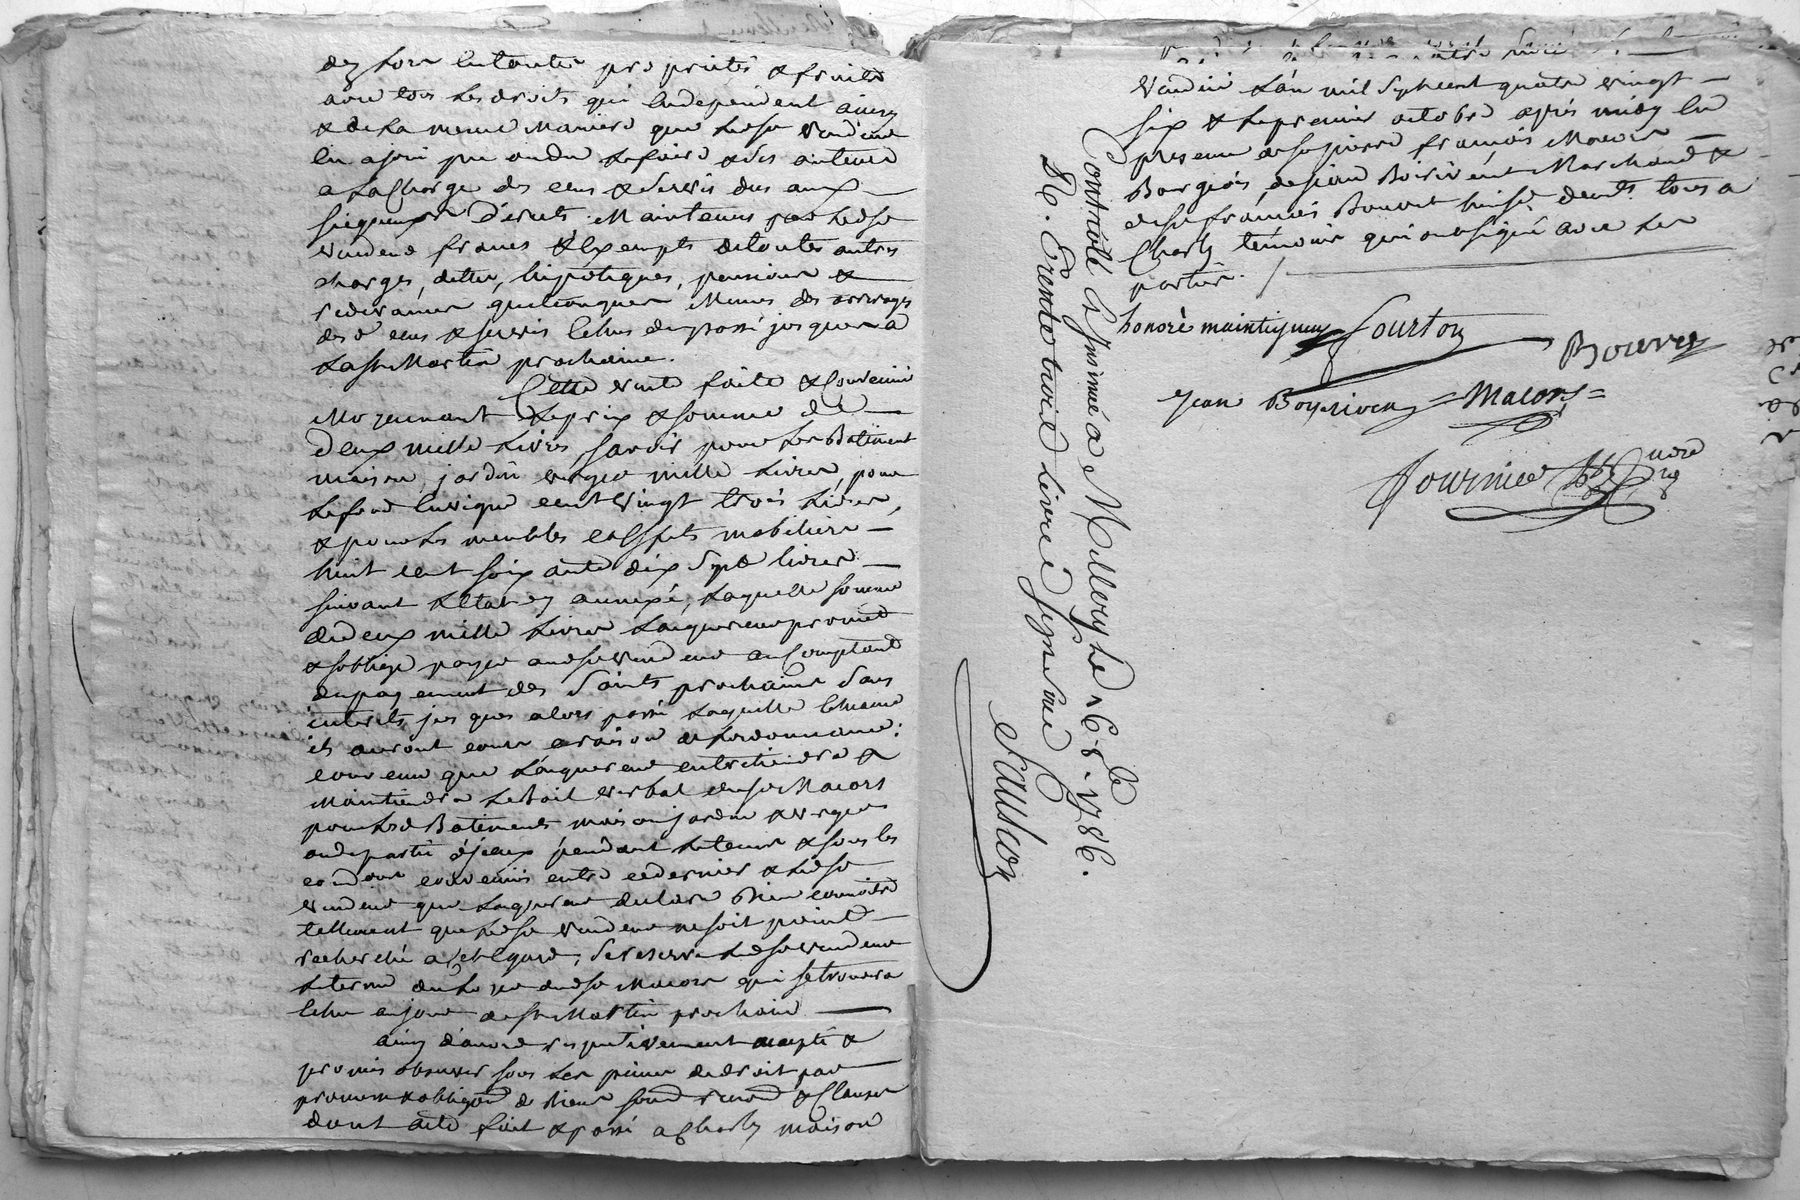 dez hors en toutte proprietés & fruits
avec tous les droits qui en dependent ainsy
& de la meme maniere que ledsr vendeur
en a joui pu ou du le faire & ses auteurs
a la charge des cens & servis dus aux
seigneurs directs Maintenus par ledsr
vendeur francs & exempts de toutes autres
charges, dettes, hipotèques, pensions &
redevances quelconques Memes des arrerages
desd cens & servis echus du passé jusques a
la st Martin prochaine.
Cette vente faite & convenue
Moyennant le prix & somme de
deux mille livres, savoir pour les Batiments
maison, jardin verger mille livres, pour
le fond en vigne cent vingt trois livres,
& pour les meubles & effets mobiliers
huit cent soixante dix sept livres
suivant l'etat cy annexé, laquelle somme
de deux mille livres l'acquereur promet
& s'oblige payer audsr vendeur au comptant
du payement des Saints prochains sans
interets jusques alors passé laquelle echeance
ils auront cours a raison de l'ordonnance;
convenu que l'acquereur entretiendra &
Maintiendra le Bail verbal dusr Macors
pour lesd Batiments maison jardin & verger
ou de partie d'iceux pendant le temps & sous les
conditions convenues entre ce dernier & ledsr
vendeur que l'acquereur declare Bien connoitre
tellement que ledsr vendeur ne soit point
recherché a cet egard, se reserve ledsr vendeur
le terme du loyer dudsr Macors qui se trouvera
echu au jour de st Martin prochain
ainsy d'accord respectivement accepté &
promis observer sous les peines de droit par
promesse & obligaon de Biens soumon renond & Clauses
dont acte fait & passé a Charly maison
vendue l'an mil sept cent quatre vingt
six & le premier octobre après midy en
presence de sr pierre françois Macors
Bourgeois, de jean Boirivent Marchand &
de sr françois Bouvet huissier demts tous a
Charly témoins qui ont signé avec les
parties.
honoré maintigneux Fourton
Bouvet
Jean Boyriven = Macors =
fournier nore
Controllé & Insinué a Millery le 16 8bre 1786.
R. trente trois livres dix sept sols
Saulcon